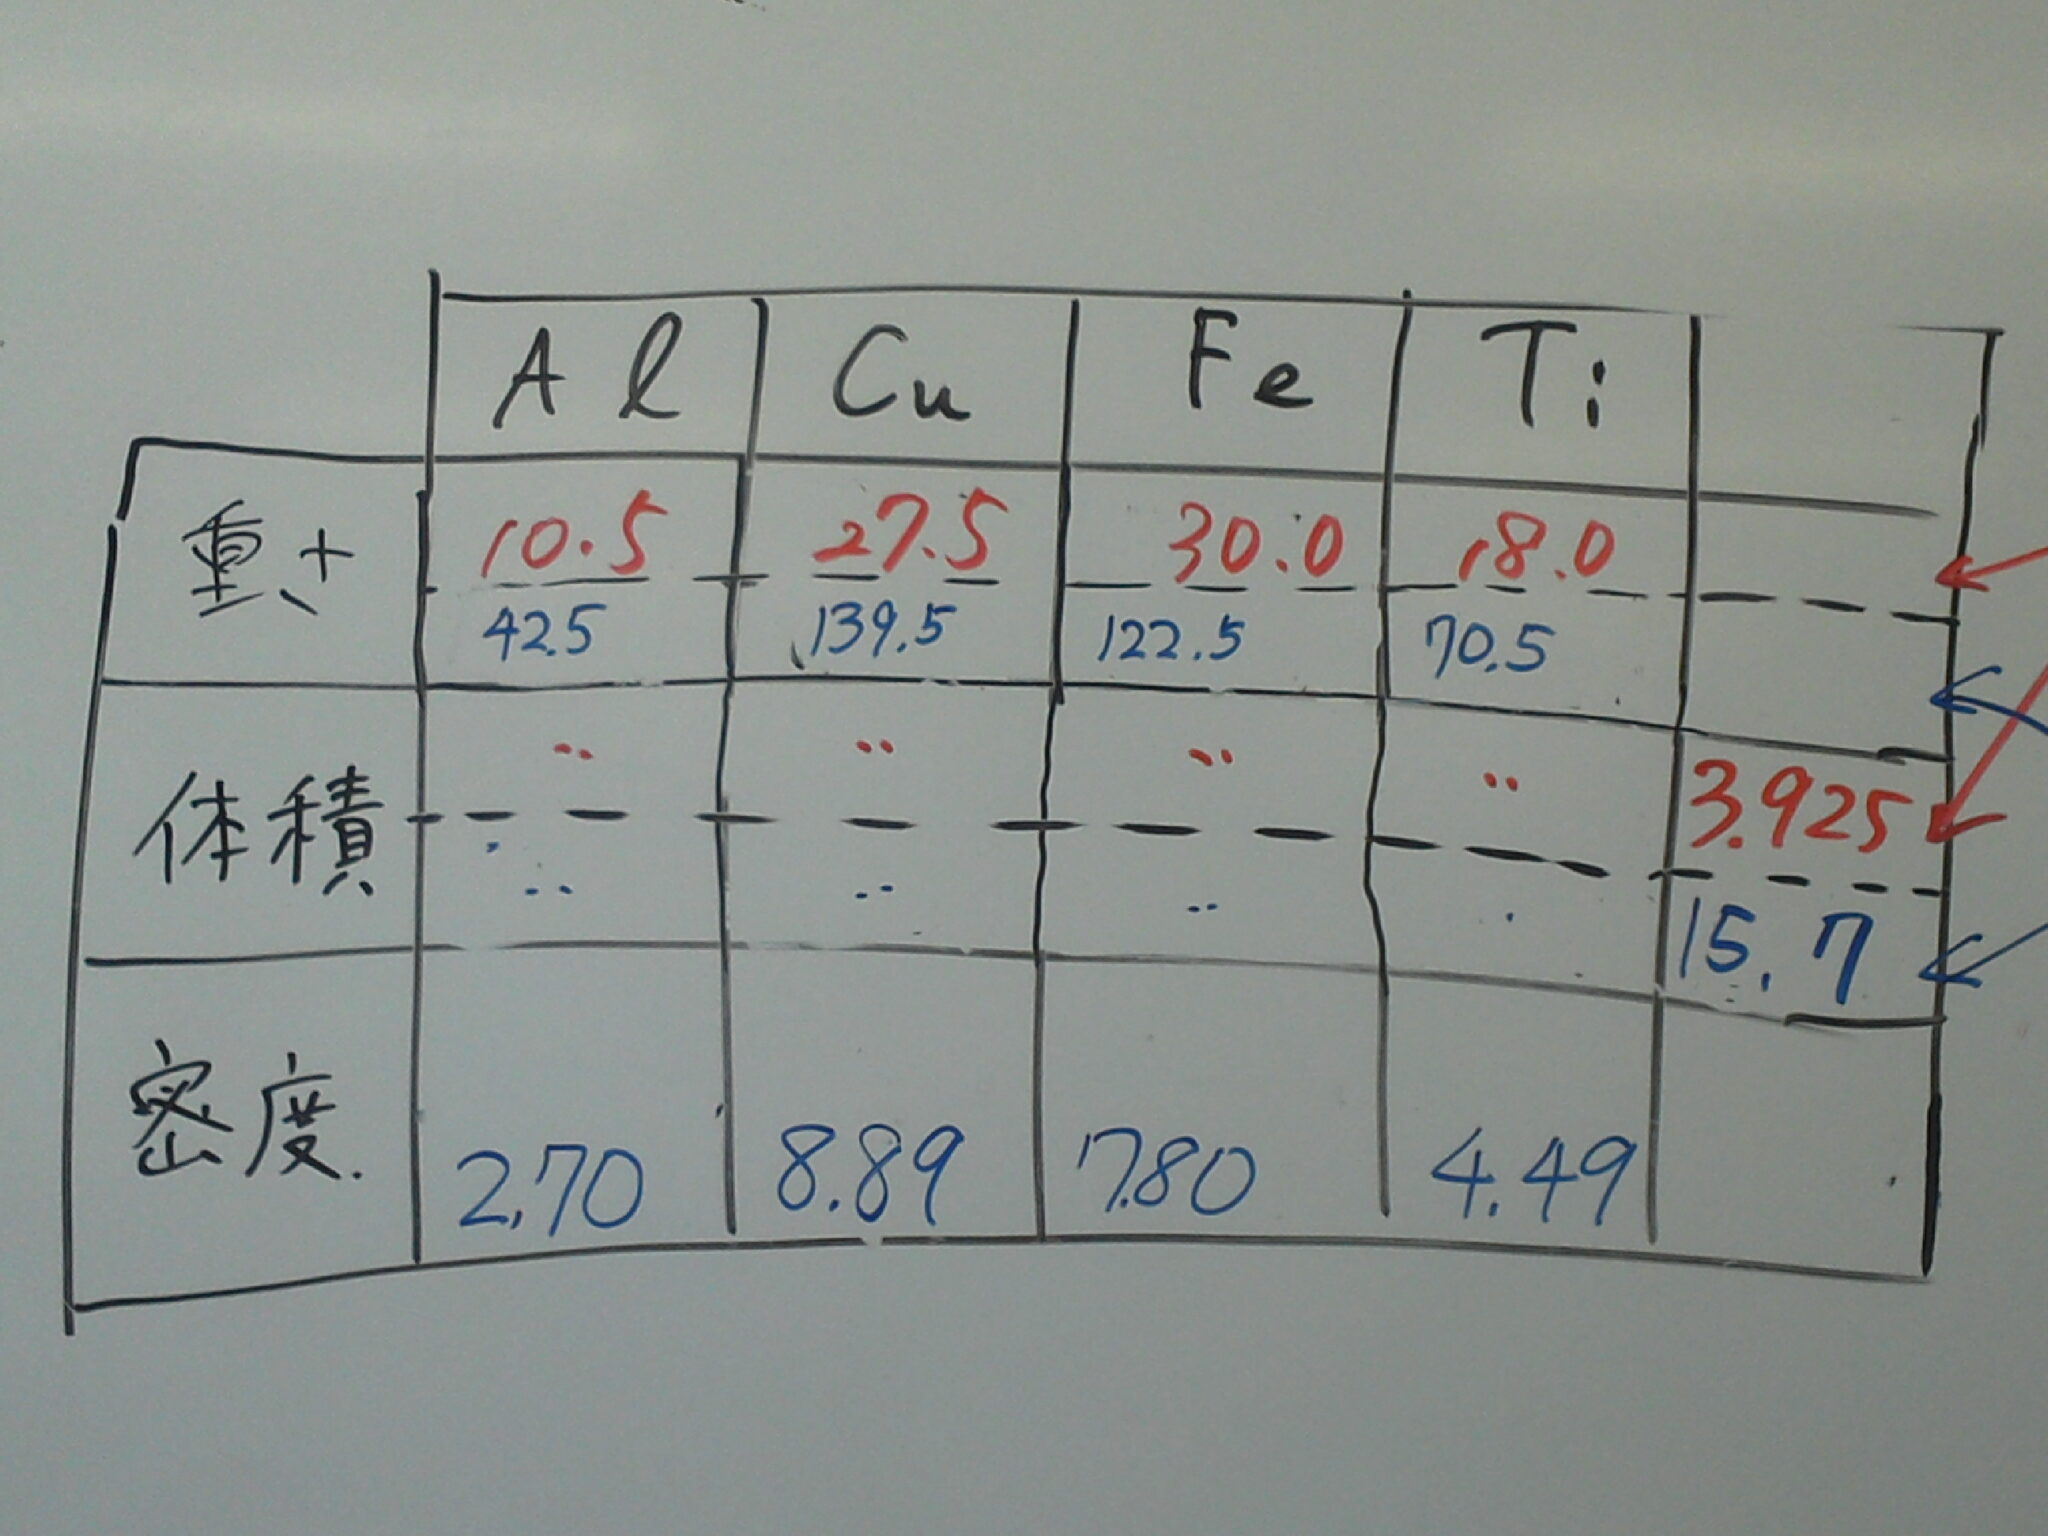 Al Cu Fe Ti
重さ 10.5 27.5 30.0 18.0
42.5 139.5 122.5 70.5
体積 〃 〃 〃 〃 3.925
〃 〃 〃 15.7
密度 2.70 8.89 7.80 4.49